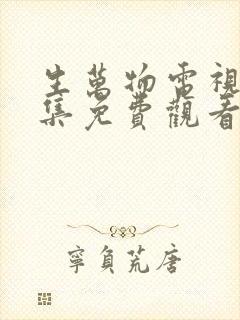 生萬物電視
集免費觀看
寧負荒唐